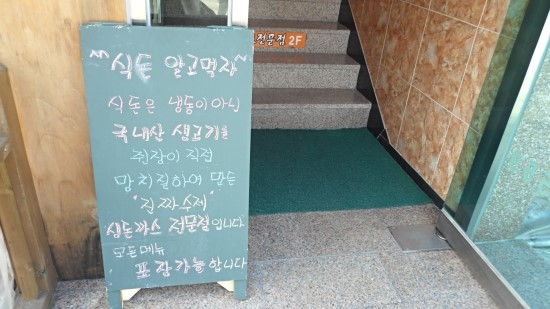 식돈 알고먹자
식돈은 냉동이 아닌
국내산 생고기를
쥔장이 직접
망치질하여 만든
"진짜수제"
생돈까스 전문점입니다
모든메뉴
포장가능합니다
전문점 2F